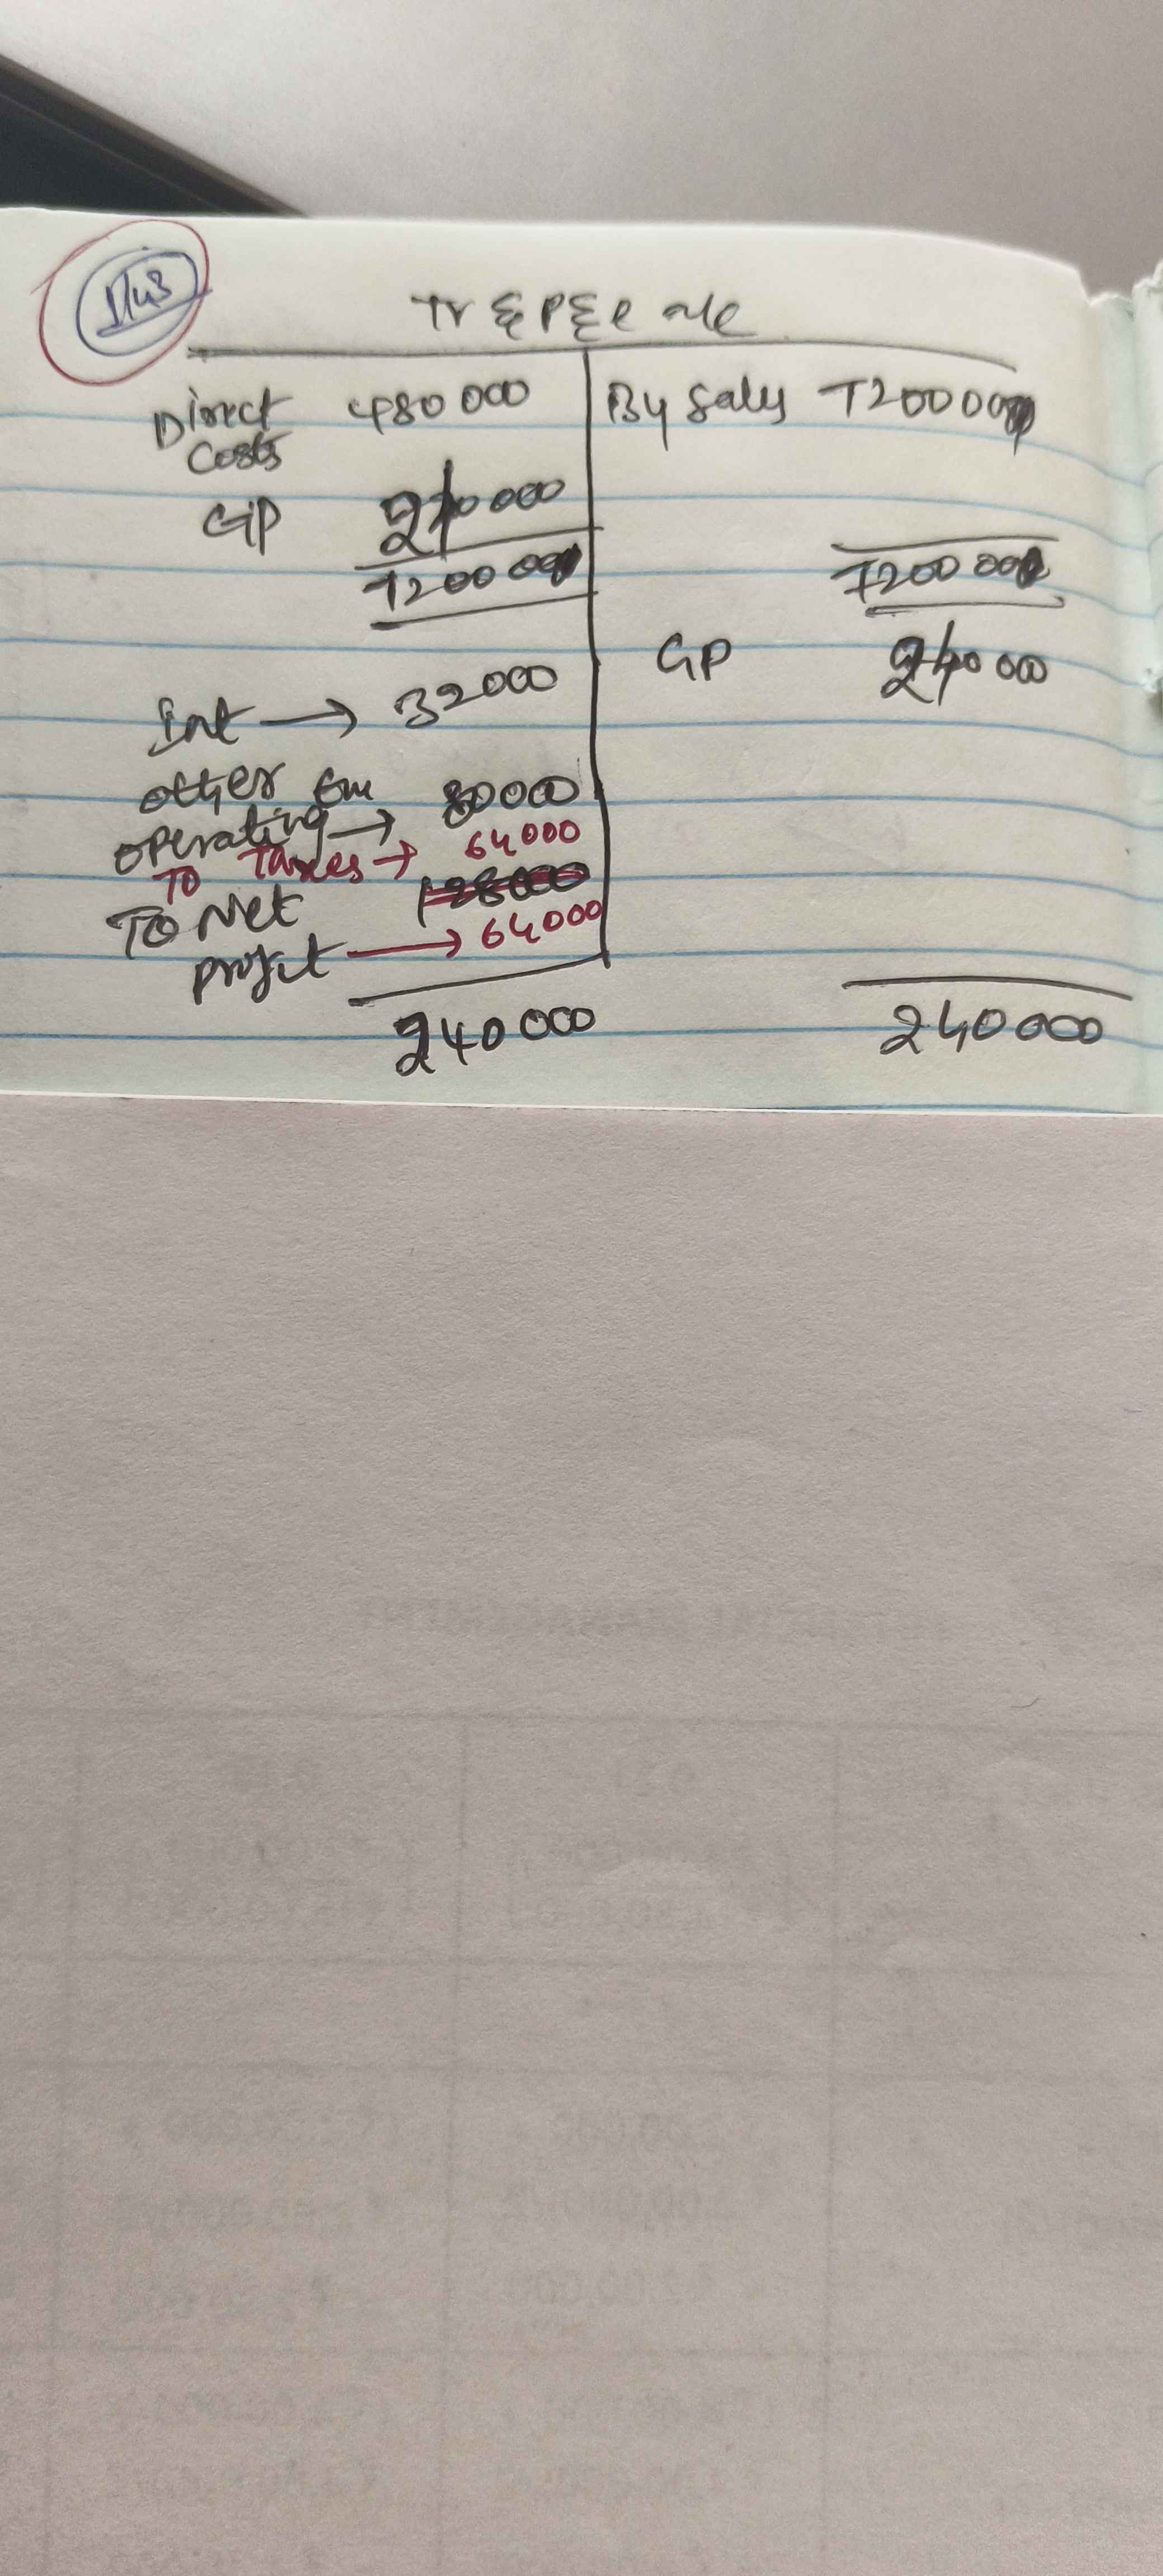 Tr & P & L a/c
Direct 480 000 By Sales 720000
Costs
GP 240 000
720000 720000
GP 240 000
Int → 32000
other
operating → 80000
To Taxes → 64000
To Net 128000
profit → 64000
240 000 240 000